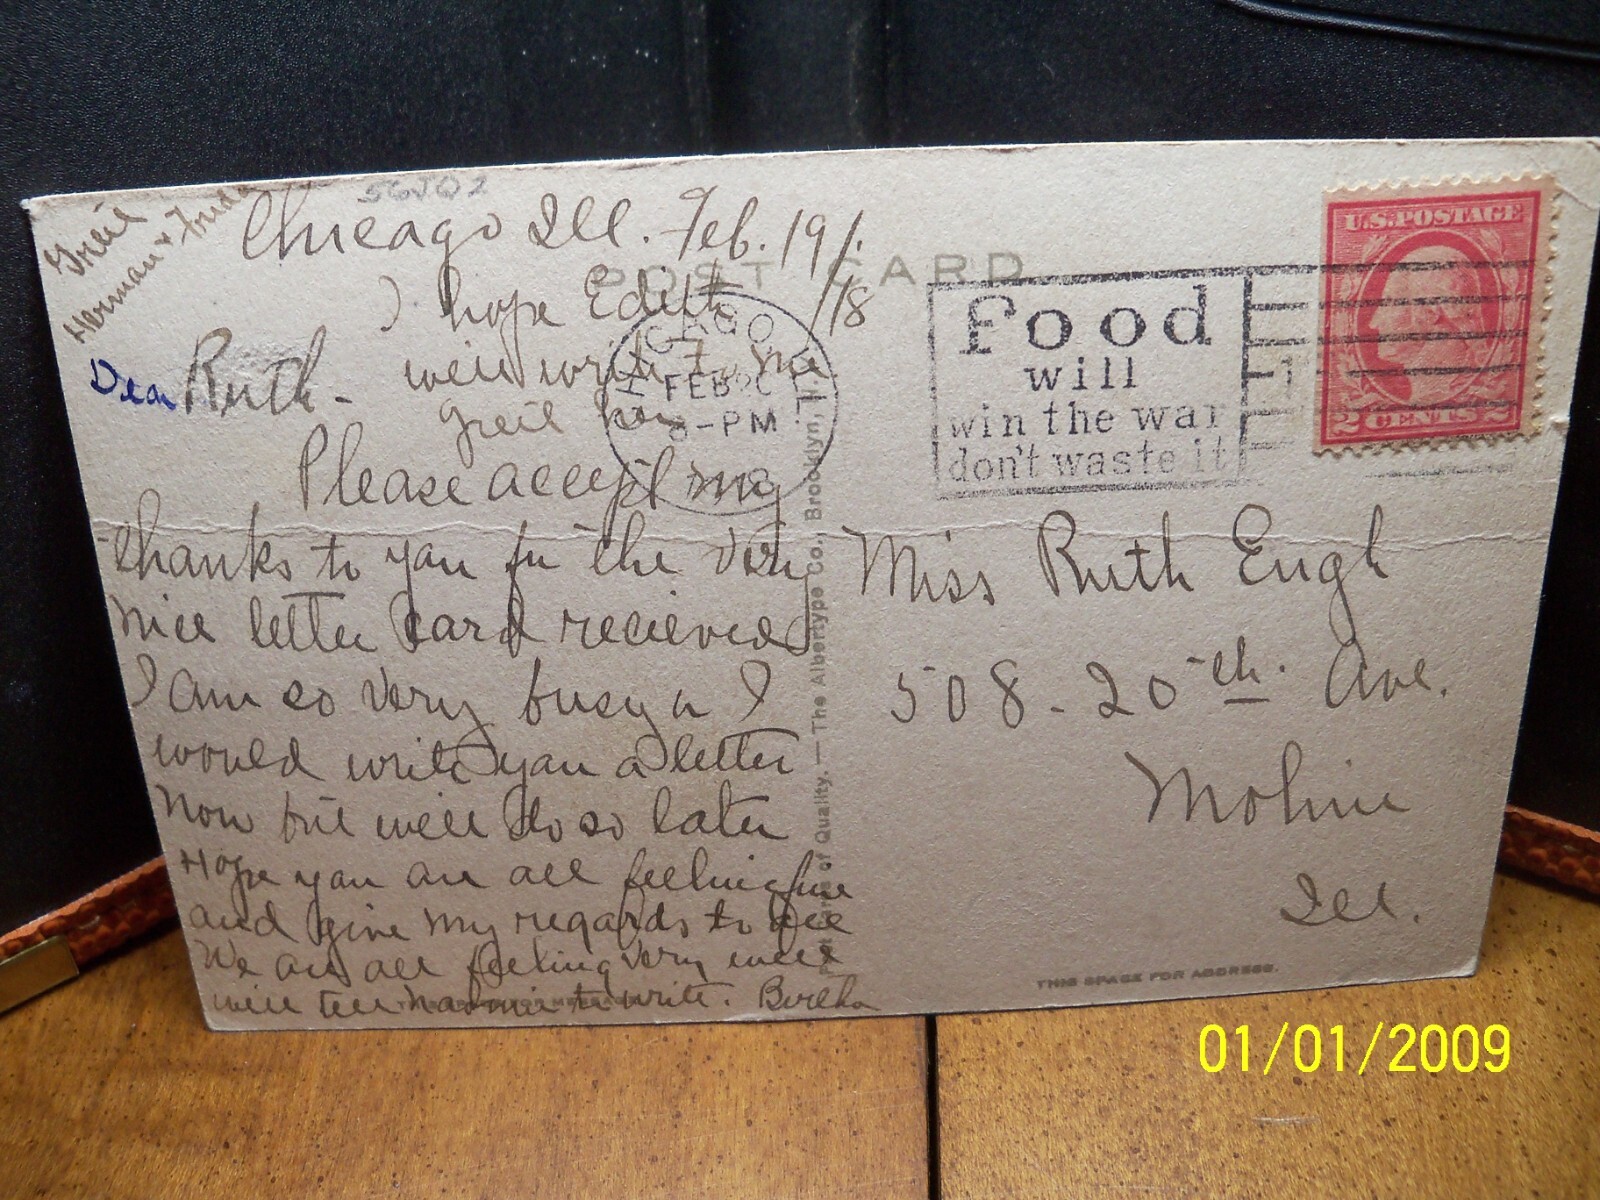 56JQ2
Greil
Herman + Frieda
Chicago Ill. Feb. 19/.
/18
POST CARD
I hope Edith
will write to me
Greil her
CHICAGO, ILL.
FEB 20
8-PM
Food
will
win the war
don't waste it
U.S. POSTAGE
2 CENTS 2
Dear Ruth -
Please accept my
thanks to you for the very
nice letter card recieved
I am so very busy or I
would write you a letter
now but will do so later
Hope you are all feeling fine
and give my regards to all
We are all feeling very well
will tell to write. Bertha
of Quality. — The Albertype Co., Brooklyn,
Miss Ruth Engh
508 - 20th. Ave.
Moline
Ill.
THIS SPACE FOR ADDRESS.
01/01/2009